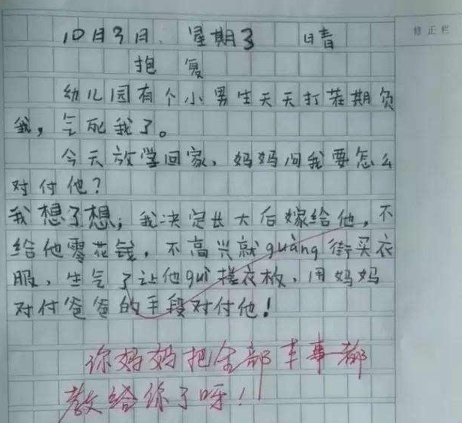 修正栏
10月3日 星期3 晴
抱复
幼儿园有个小男生天天打若期负
我，气死我了。
今天放学回家，妈妈问我要怎么
对付他？
我想了想，我决定长大后嫁给他，不
给他零花钱，不高兴就guàng街买衣
服，生气了让他guì搓衣板，用妈妈
对付爸爸的手段对付他！
你妈妈把全部本事都
教给你了呀！